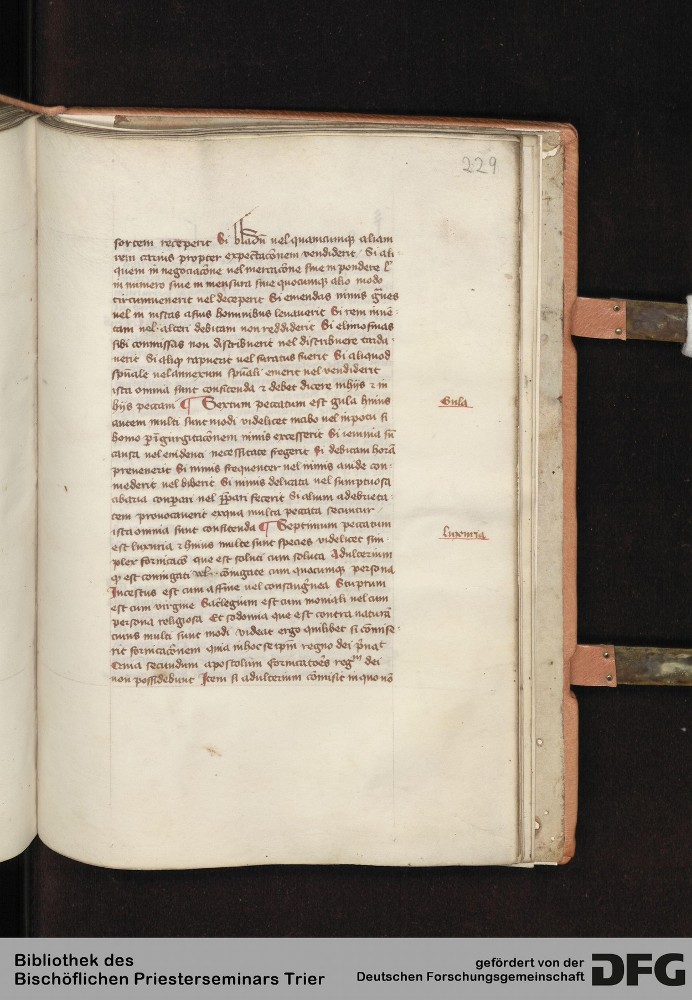 229
sortem receperit Si bladu͞ vel quamcumqꝫ aliam
rem carius propter expectac͞onem vendiderit Si ali
quem in negociac͞one vel mercac͞one siue in pondere
in numero siue in mensura siue quocumqꝫ alio modo
circumuenerit vel deceperit Si emendas nimis
vel in iustas a suis hominibus leuauerit Si rem
vel alteri debitam non reddiderit Si elmosinas
sibi commissas non distribuerit vel distribuere tarda
uerit Si aliqꝫ rapuerit vel furatus fuerit Si aliquod
sp͞uale vel annexum sp͞uali emerit vel vendiderit
ista omnia sunt confitenda ⁊ debet dicere in hijs ⁊ in
hijs peccaui ¶ Sextum peccatum est gula huius
autem multi sunt modi videlicet in cibo vel in potu si
homo nimis excesserit Si ieiunia
causa vel euidenti necessitate fregerit Si debitam hora͞
preuenerit Si nimis frequenter vel nimis auide com
mederit vel biberit Si nimis delicata vel sumptuosa
cibaria vel fecerit Si alium ad ebrieta
tem prouocauerit ex qua multa peccata secuntur
ista omnia sunt confitenda ¶ Septimum peccatum
est luxuria ⁊ huius multe sunt species videlicet sim
plex fornicac͞o que est soluti cum soluta Adulterium
est coniugati vel coniugate cum quacumqꝫ persona
Incestus est cum affine vel consang͞nea Stuprum
est cum virgine Sac͛legium est cum moniali vel cum
persona religiosa Et sodomia que est contra natura͞
cuius multi sunt modi videat ergo quilibet si co͞mise
rit fornicac͞onem quia in hoc se ip͞m regno dei p͛uat
Quia secundum apostolum fornicato͛es regnum dei
non possidebunt Item si adulterium co͞misit in quo no͞
Gula
Luxuria
Bibliothek des
Bischöflichen Priesterseminars Trier
gefördert von der
Deutschen Forschungsgemeinschaft
DFG